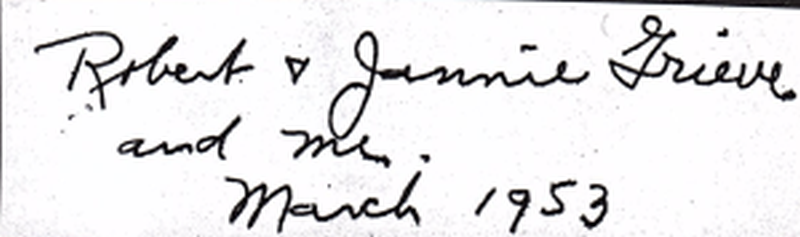 Robert & Jannie Grieve
and me.
March 1953